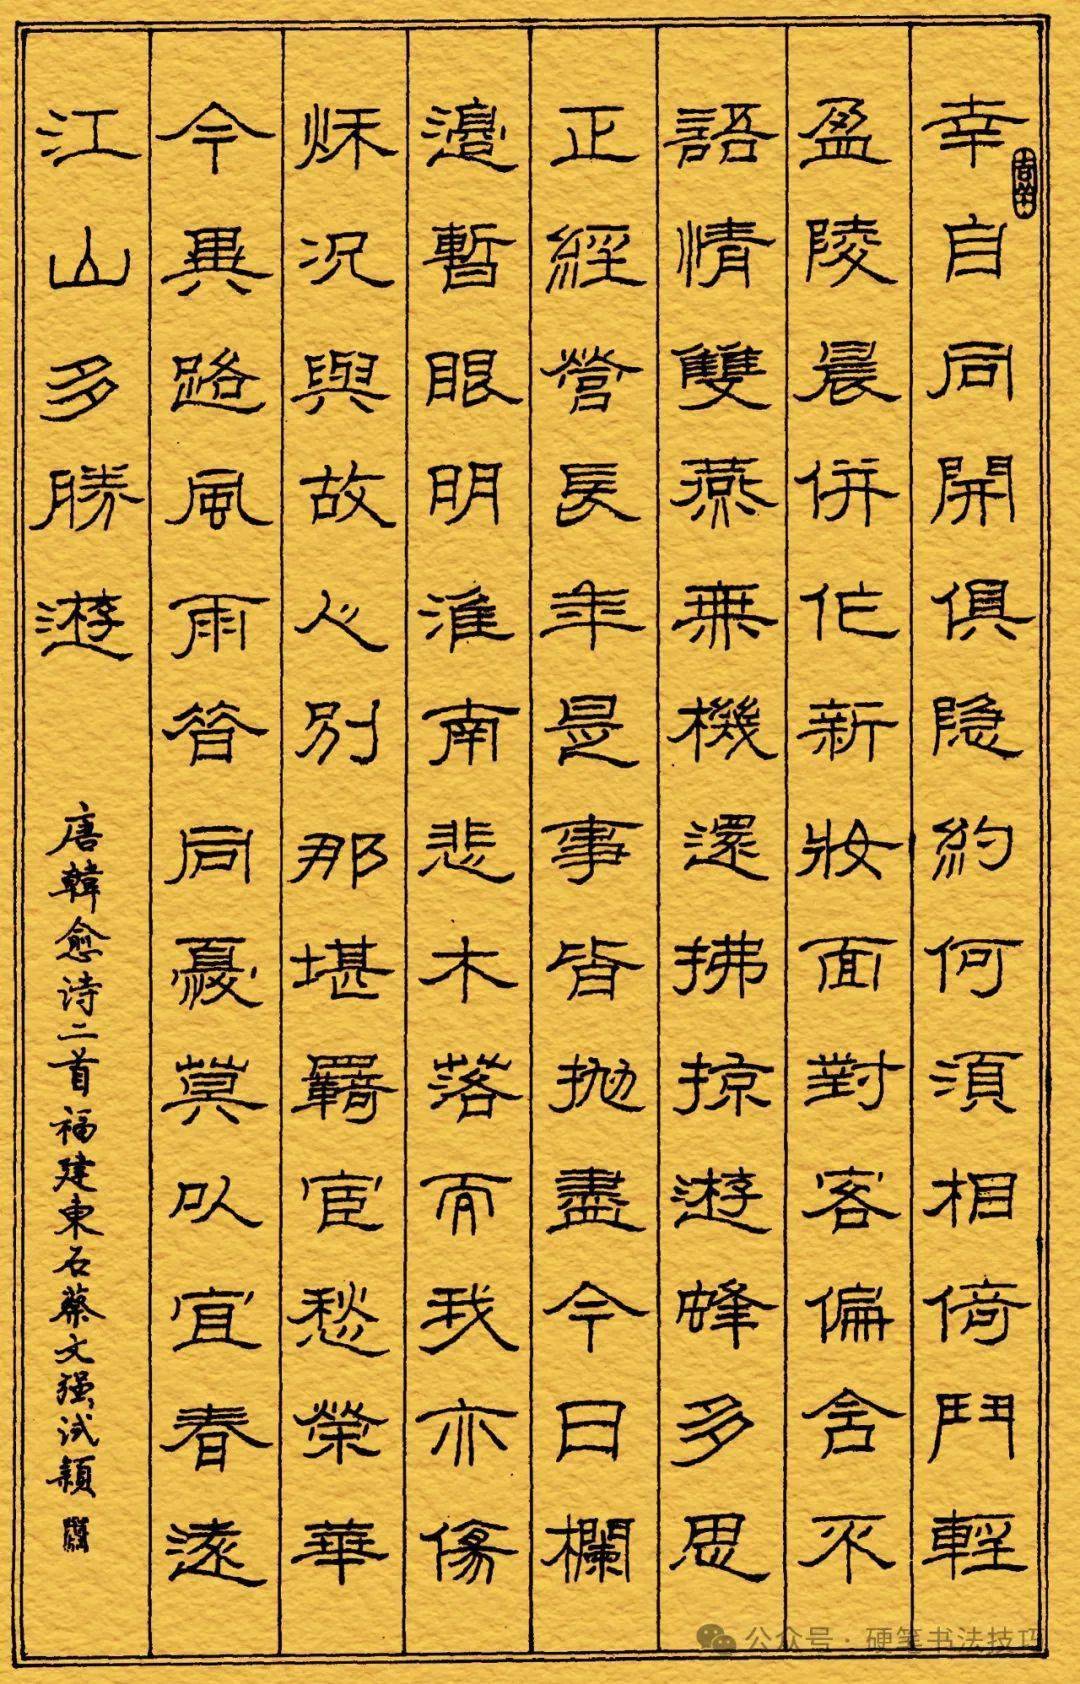 幸自同開俱隐約何須相倚鬥輕
盈陵晨併作新妝面對客偏含不
語情雙燕無機還拂掠遊蜂多思
正經營長年是事皆抛盡今日欄
邊暫眼明淮南悲木落而我亦傷
秌況與故人別那堪羇宦愁榮華
今異路風雨昝同憂莫以宜春遠
江山多勝遊
唐韓愈诗二首福建東石蔡文强试颖
公众号·硬笔书法技巧